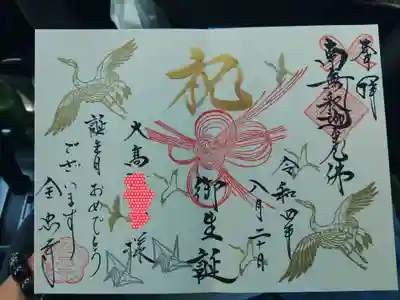 奉拝
南無釈迦牟尼佛
祝
令和四年
八月二十日
御生誕
大高
様
誕生日おめでとう
ございます